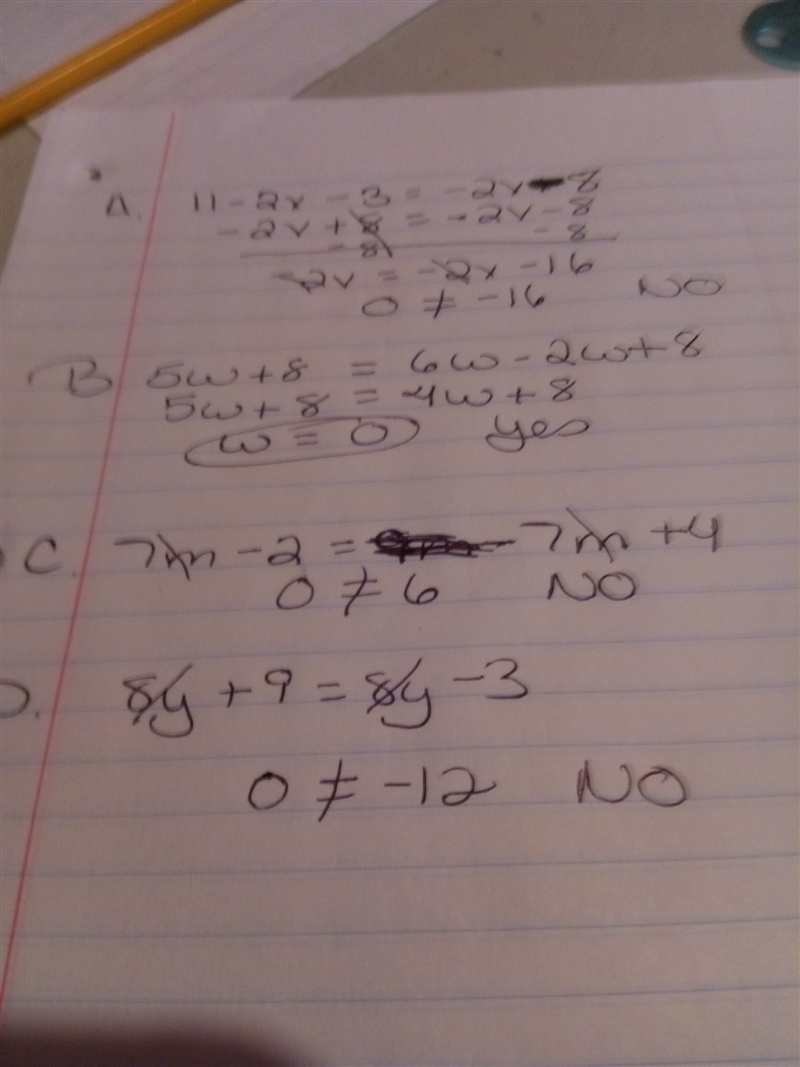 A. 11 - 2v - 3 = -2v - 8
- 2v + 8 = -2v - 8
- 8 - 8
-2v = -2v - 16
0 ≠ -16 NO
B 5w + 8 = 6w - 2w + 8
5w + 8 = 4w + 8
w = 0 yes
C. 7m - 2 = 7m + 4
0 ≠ 6 NO
D. 8y + 9 = 8y - 3
0 ≠ -12 NO